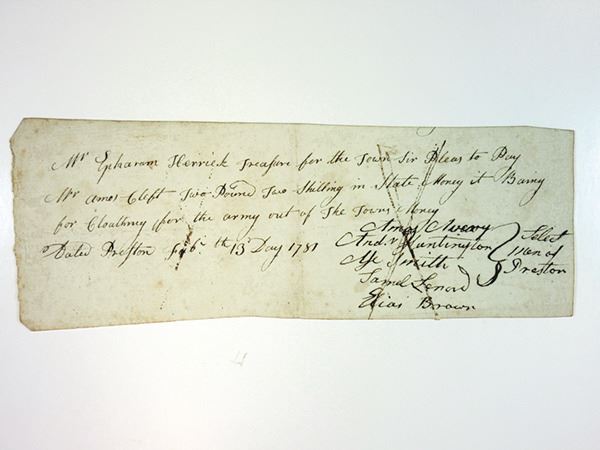 Mr Epharam Herrick Treasure for the Town Sir Pleas to Pay
Mr Amos Cleft Two Pound Two Shilling in State Money it Baing
for Cloathing for the army out of The Towns Money
Dated Preston Feb. th 13 Day 1781
Amos Avery
And. Huntington
Smith
Samel Lenord
Elias Brown
Select
men of
Preston